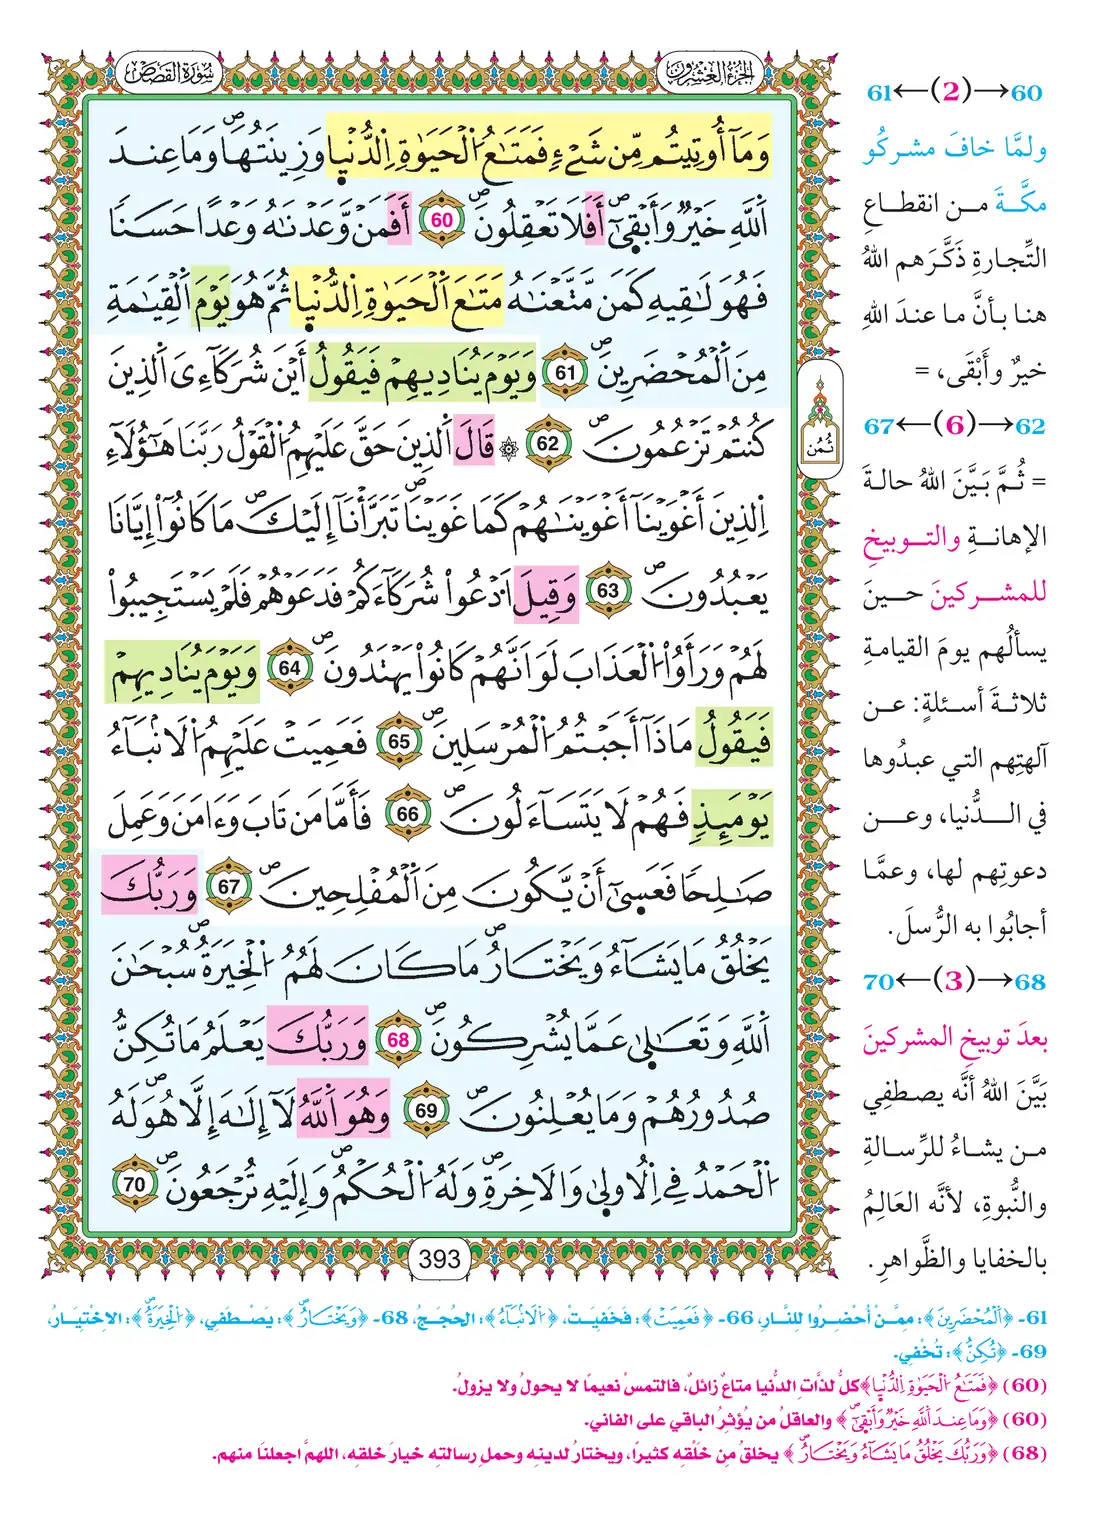 سُورَةُ القَصَصِ
الجُزْءُ العِشْرُون
وَمَآ أُوتِيتُم مِّن شَےْءٖ فَمَتَٰعُ اُ۬لْحَيَوٰةِ اِ۬لدُّنْي۪ا وَزِينَتُهَاۖ وَمَا عِندَ
اَ۬للَّهِ خَيْرٞ وَأَبْق۪يٰٓۖ أَفَلَا تَعْقِلُونَۖ 60 أَفَمَن وَّعَدْنَٰهُ وَعْداً حَسَناٗ
فَهُوَ لَٰقِيهِ كَمَن مَّتَّعْنَٰهُ مَتَٰعَ اَ۬لْحَيَوٰةِ اِ۬لدُّنْي۪ا ثُمَّ هُوَ يَوْمَ اَ۬لْقِيَٰمَةِ
مِنَ اَ۬لْمُحْضَرِينَۖ 61 وَيَوْمَ يُنَادِيهِمْ فَيَقُولُ أَيْنَ شُرَكَآءِيَ اَ۬لذِينَ
كُنتُمْ تَزْعُمُونَۖ 62 ۞ قَالَ اَ۬لذِينَ حَقَّ عَلَيْهِمُ اُ۬لْقَوْلُ رَبَّنَا هَٰٓؤُلَآءِ
اِ۬لذِينَ أَغْوَيْنَآ أَغْوَيْنَٰهُمْ كَمَا غَوَيْنَاۖ تَبَرَّأْنَآ إِلَيْكَۖ مَا كَانُوٓاْ إِيَّانَا
يَعْبُدُونَۖ 63 وَقِيلَ اَ۟دْعُواْ شُرَكَآءَكُمْ فَدَعَوْهُمْ فَلَمْ يَسْتَجِيبُواْ
لَهُمْ وَرَأَوُاْ اُ۬لْعَذَابَ لَوَ اَنَّهُمْ كَانُواْ يَهْتَدُونَۖ 64 وَيَوْمَ يُنَادِيهِمْ
فَيَقُولُ مَاذَآ أَجَبْتُمُ اُ۬لْمُرْسَلِينَۖ 65 فَعَمِيَتْ عَلَيْهِمُ اُ۬لَانۢبَآءُ
يَوْمَئِذٖ فَهُمْ لَا يَتَسَآءَلُونَۖ 66 فَأَمَّا مَن تَابَ وَءَامَنَ وَعَمِلَ
صَٰلِحاٗ فَعَس۪يٰٓ أَنْ يَّكُونَ مِنَ اَ۬لْمُفْلِحِينَۖ 67 وَرَبُّكَ
يَخْلُقُ مَا يَشَآءُ وَيَخْتَارُۖ مَا كَانَ لَهُمُ اُ۬لْخِيَرَةُۖ سُبْحَٰنَ
اَ۬للَّهِ وَتَعَٰل۪يٰ عَمَّا يُشْرِكُونَۖ 68 وَرَبُّكَ يَعْلَمُ مَا تُكِنُّ
صُدُورُهُمْ وَمَا يُعْلِنُونَۖ 69 وَهُوَ اَ۬للَّهُ لَآ إِلَٰهَ إِلَّا هُوَۖ لَهُ
اُ۬لْحَمْدُ فِے اِ۬لُاول۪يٰ وَالَاخِرَةِۖ وَلَهُ اُ۬لْحُكْمُۖ وَإِلَيْهِ تُرْجَعُونَۖ 70
ثُمُن
393
61←(2)→60
ولمَّا خافَ مشركُو
مكَّةَ من انقطاعِ
التِّجارةِ ذَكَّرَهم اللهُ
هنا بأنَّ ما عندَ اللهِ
خيرٌ وأَبْقَى، =
67←(6)→62
= ثُمَّ بَيَّنَ اللهُ حالةَ
الإهانةِ والتوبيخِ
للمشركينَ حينَ
يسألُهم يومَ القيامةِ
ثلاثةَ أسئلةٍ: عن
آلهتِهم التي عبدُوها
في الدُّنيا، وعن
دعوتِهم لها، وعمَّا
أجابُوا به الرُّسلَ.
70←(3)→68
بعدَ توبيخِ المشركينَ
بَيَّنَ اللهُ أنَّه يصطفِي
من يشاءُ للرِّسالةِ
والنُّبوةِ، لأنَّه العالِمُ
بالخفايا والظَّواهرِ.
61- ﴿اَ۬لْمُحْضَرِينَ﴾: ممَّنْ أُحضِرُوا للنَّارِ، 66- ﴿فَعَمِيَتْ﴾: فَخَفِيَتْ، ﴿اُ۬لَانۢبَآءُ﴾: الحُجَجُ، 68- ﴿وَيَخْتَارُۖ﴾: يَصْطَفي، ﴿اُ۬لْخِيَرَةُۖ﴾: الاخْتِيَارُ،
69- ﴿تُكِنُّ﴾: تُخْفِي.
(60) ﴿فَمَتَٰعُ اُ۬لْحَيَوٰةِ اِ۬لدُّنْي۪ا﴾ كلُّ لذَّاتِ الدُّنيا متاعٌ زائلٌ، فالتمسْ نعيمًا لا يحولُ ولا يزولُ.
(60) ﴿وَمَا عِندَ اَ۬للَّهِ خَيْرٞ وَأَبْق۪يٰٓۖ﴾ والعاقلُ من يُؤثرُ الباقي على الفاني.
(68) ﴿وَرَبُّكَ يَخْلُقُ مَا يَشَآءُ وَيَخْتَارُۖ﴾ يخلقُ مِن خَلْقِه كثيرًا، ويختارُ لدينِه وحملِ رسالتِه خيارَ خلقِه، اللهمَّ اجعلنَا منهم.